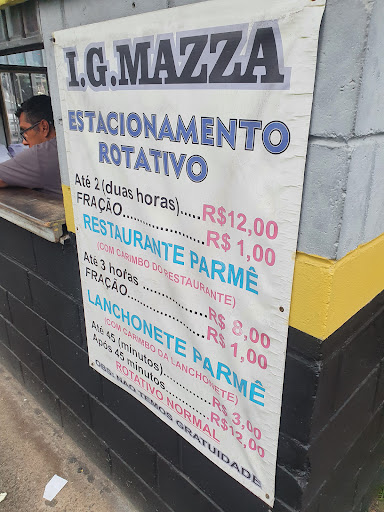 I.G.MAZZA
ESTACIONAMENTO
ROTATIVO
Até 2 (duas horas).....R$12,00
FRAÇÃO....................R$ 1,00
RESTAURANTE PARMÊ
(COM CARIMBO DO RESTAURANTE)
Até 3 horas ................R$ 8,00
FRAÇÃO....................R$ 1,00
LANCHONETE PARMÊ
(COM CARIMBO DA LANCHONETE)
Até 45 (minutos)...........R$ 3,00
Após 45 minutos..........R$12,00
ROTATIVO NORMAL
OBS: NÃO TEMOS GRATUIDADE